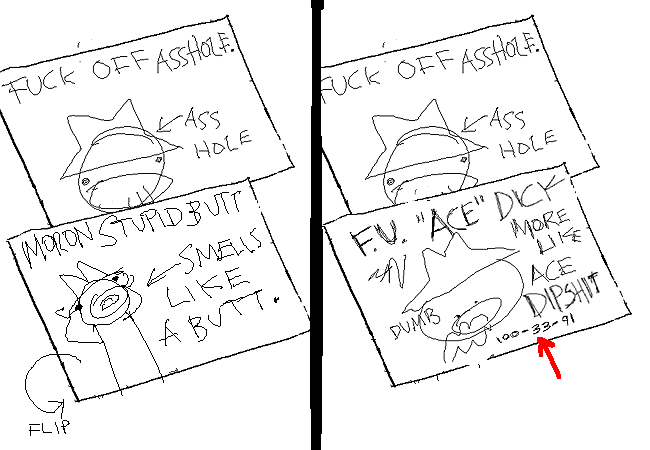 FUCK OFF ASSHOLE.
ASS
HOLE
MORON STUPID BUTT
SMELLS
LIKE
A BUTT.
FLIP
FUCK OFF ASSHOLE.
ASS
HOLE
F.U. "ACE" DICK
MORE
LIKE
ACE
DIPSHIT
DUMB
100-33-91